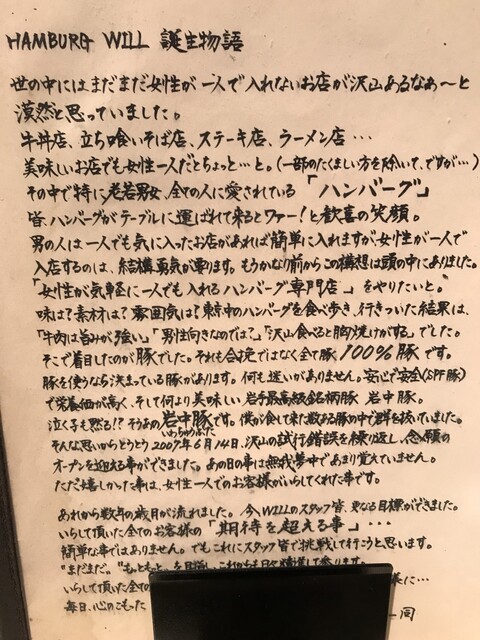 HAMBURG WILL 誕生物語
世の中にはまだまだ女性が一人で入れないお店が沢山あるなぁ〜と
漠然と思っていました。
牛丼店、立ち喰いそば店、ステーキ店、ラーメン店…
美味しいお店でも女性一人だとちょっと…と。(一部のたくましい方を除いて、ですが…)
その中で特に老若男女、全ての人に愛されている「ハンバーグ」
皆、ハンバーグがテーブルに運ばれて来るとワァー!と歓喜の笑顔。
男の人は一人でも気に入ったお店があれば簡単に入れますが、女性が一人で
入店するのは、結構勇気が要ります。もうかなり前からこの構想は頭の中にありました。
「女性が気軽に一人でも入れるハンバーグ専門店」をやりたいと。
味は?素材は?雰囲気は?東京中のハンバーグを食べ歩き、行きついた結果は、
「牛肉は旨みが強い」「男性向きなのでは?」「沢山食べると胸焼けがする」でした。
そこで着目したのが豚でした。それも合挽ではなく全て豚、100%豚です。
豚を使うなら決まっている豚があります。何も迷いがありません。安心で安全(SPF豚)
で栄養価が高く、そして何より美味しい岩手最高級銘柄豚 岩中豚。
泣く子も黙る!?そうあの岩中豚です。僕が食して来た数ある豚の中で群を抜いていました。
いわちゅうぶた
そんな思いからとうとう2007年6月14日、沢山の試行錯誤を繰り返し、念願の
オープンを迎える事ができました。あの日の事は無我夢中であまり覚えていません。
ただ嬉しかった事は、女性一人でのお客様がいらしてくれた事です。
あれから数年の歳月が流れました。今WILLのスタッフ皆、更なる目標ができました。
いらして頂いた全てのお客様の「期待を超える事」…
簡単な事ではありません。でもこれにスタッフ皆で挑戦して行こうと思います。
"まだまだ""もっともっと"を目指し、これからも日々精進して参ります。
いらして頂いた全ての
に…
毎日、心のこもった
一同